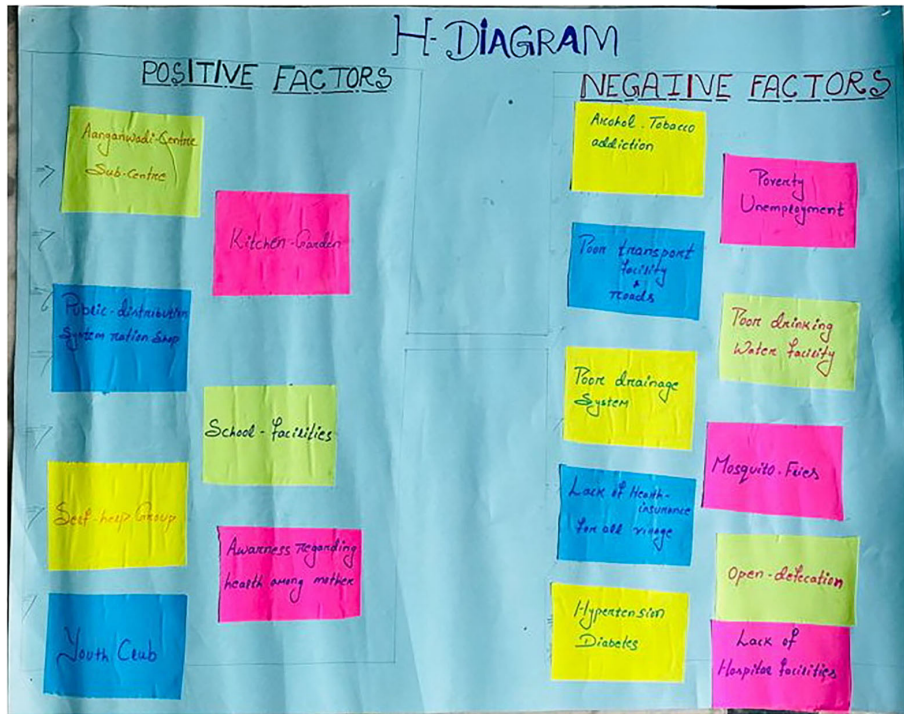 H-DIAGRAM
POSITIVE FACTORS
Aanganwadi-Centre
Sub-Centre
Kitchen-Garden
Public-distribution
System ration Shop
School-facilities
Self-help Group
Awarness regarding
health among mother
Youth Club
NEGAIIVE FACTORS
Alcohol-Tobacco
addiction
Poverty
Unemployment
Poor transport
facility
&
roads
Poor drinking
Water facility
Poor drainage
System
Mosquito-Flies
Lack of Health-
insurance
for all village
Open-defecation
Hypertension
Diabetes
Lack of
Hospital facilities